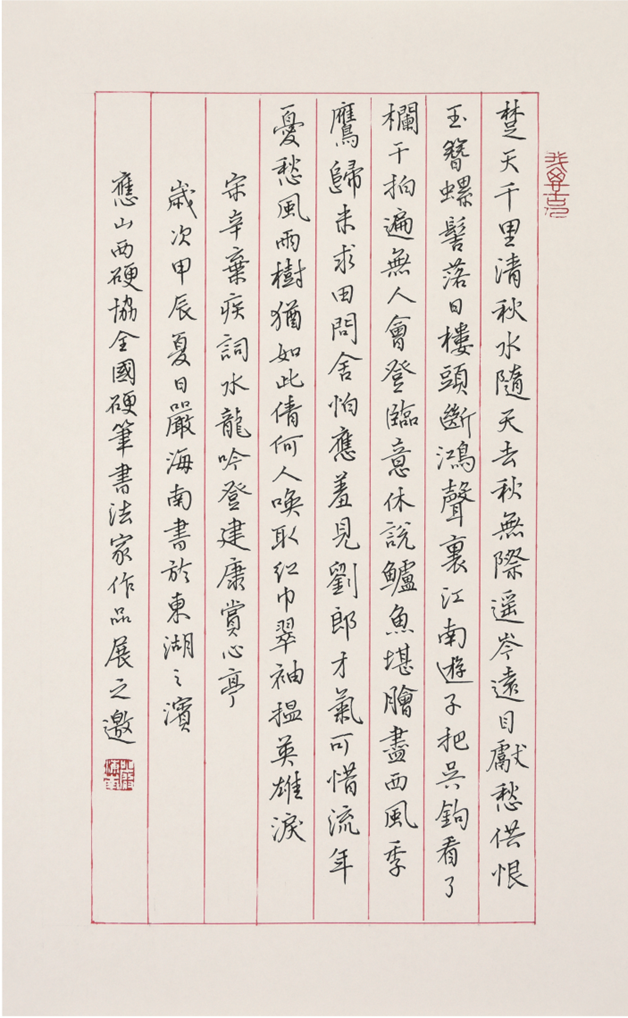 楚天千里清秋水隨天去秋無際遥岑遠目獻愁供恨
玉簪螺髻落日樓頭斷鴻聲裏江南遊子把吴鉤看了
欄干拍遍無人會登臨意休説鱸魚堪膾盡西風季
鷹歸未求田問舍怕應羞見劉郎才氣可惜流年
憂愁風雨樹猶如此倩何人唤取紅巾翠袖揾英雄淚
宋辛棄疾詞水龍吟登建康賞心亭
歲次甲辰夏日嚴海南書於東湖之濱
應山西硬協全國硬筆書法家作品展之邀